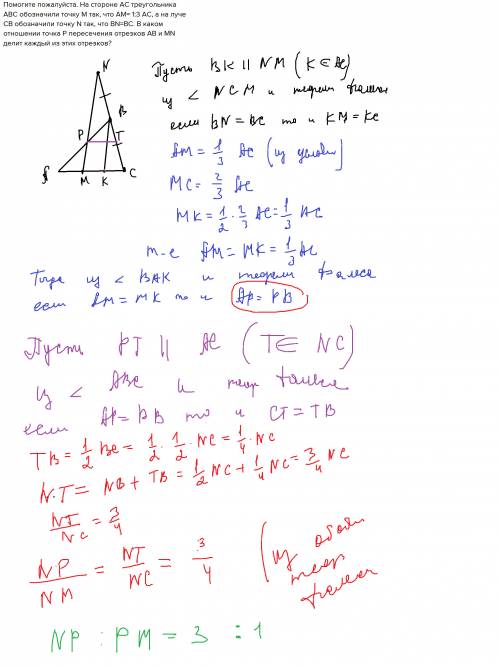 Помогите пожалуйста. На стороне АС треугольника
АВС обозначили точку М так, что АМ= 1:3 АС, а на луче
СВ обозначили точку N так, что ВN=ВС. В каком
отношении точка Р пересечения отрезков АВ и МN
делит каждый из этих отрезков?
N
B
P T
A M K C
Пусть BK || NM ( K ∈ AC )
из ∠ NCM и теореми Фалеса
если BN = BC то и KM = KC
AM = 1/3 AC ( из условия )
MC = 2/3 AC
MK = 1/2 · 2/3 AC = 1/3 AC
т-е AM = MK = 1/3 AC
Тогда из ∠ BAK и теореми Фалеса
если AM = MK то и AP = PB
Пусть PT || AC ( T ∈ NC )
из ∠ ABC и теор Фалеса
если AP = PB то и CT = TB
TB = 1/2 BC = 1/2 · 1/2 · NC = 1/4 · NC
NT = NB + TB = 1/2 NC + 1/4 NC = 3/4 NC
NT/NC = 3/4
NP/NM = NT/NC = 3/4 ( из обобщ
теор
Фалеса
NP : PM = 3 : 1